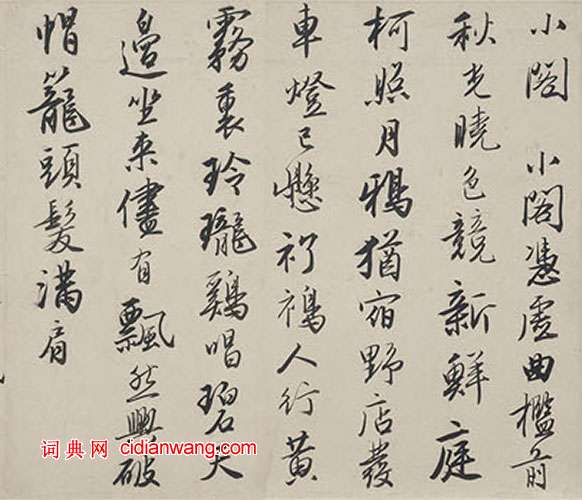 小閣 小閣憑虛曲檻前
秋光曉色競新鮮庭
柯照月鴉猶宿野店發
車燈已懸人行黄
霧裏玲瓏鷄唱碧天
邊坐来儘有飄然興破
帽籠頭髮滿肩
词典网 cidianwang.com